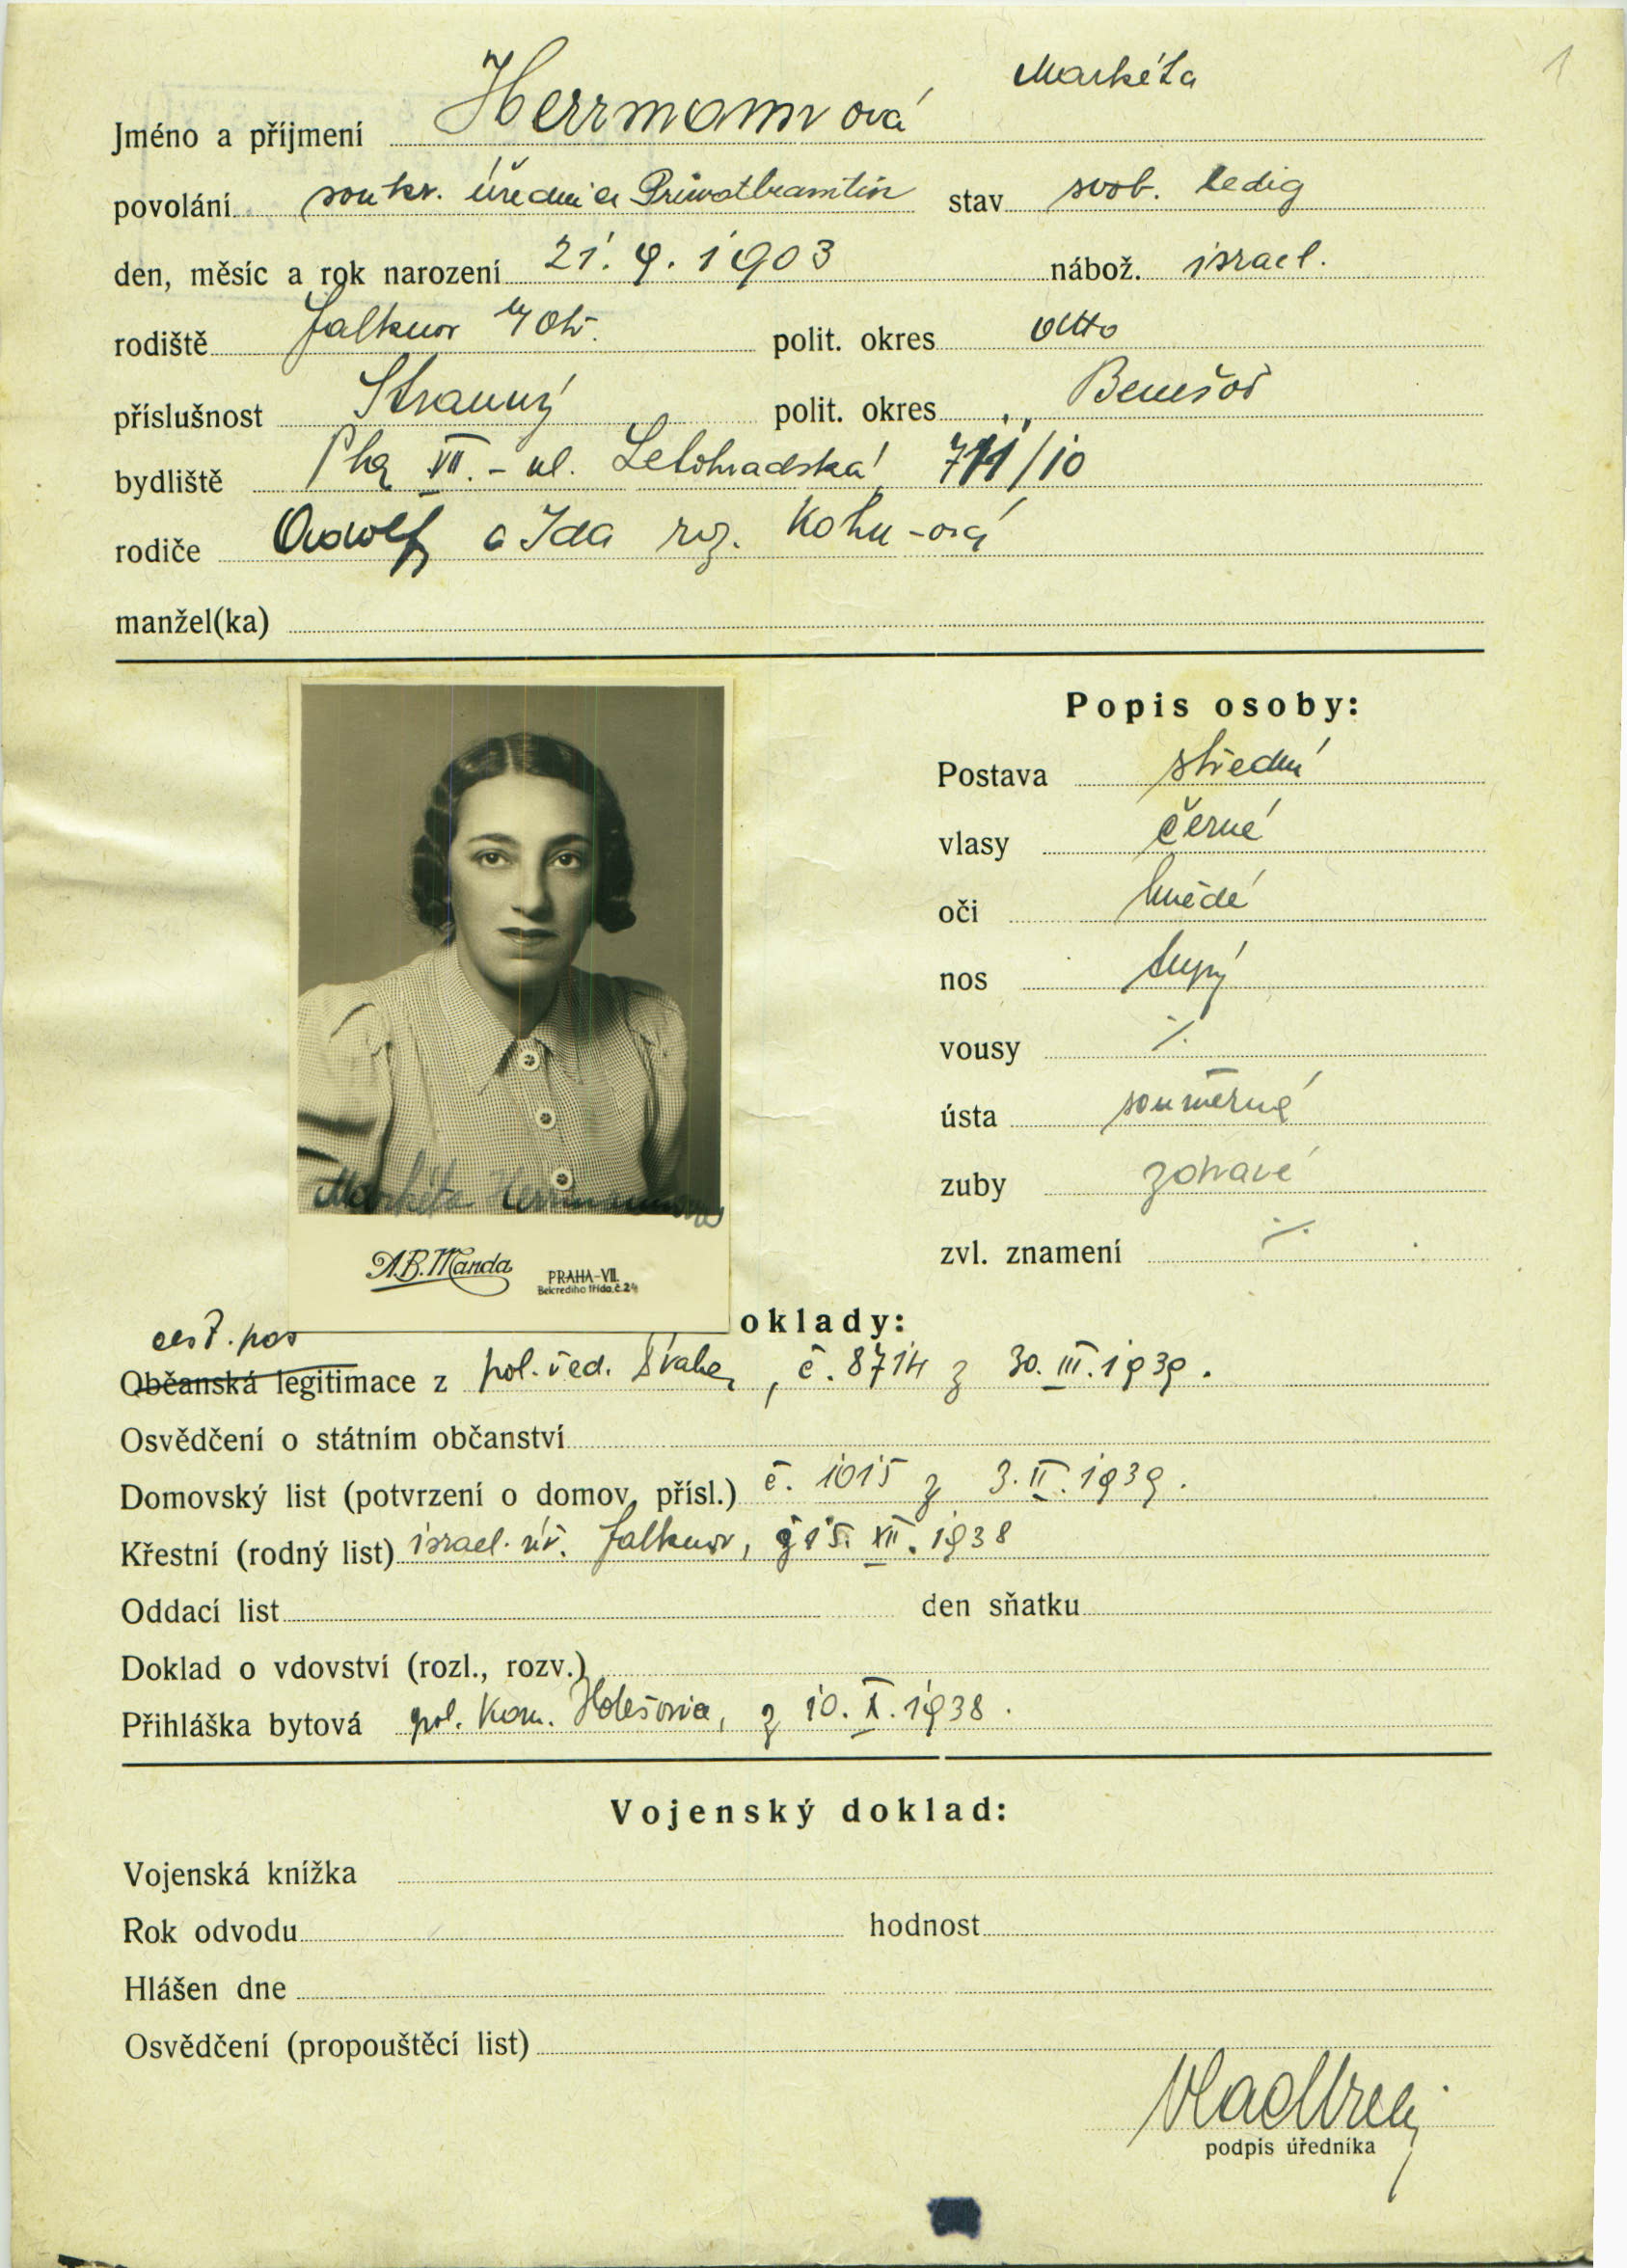 1
Markéta
Jméno a příjmení Herrmannová
povolání soukr. úřednice Privatbeamtin stav svob. ledig
den, měsíc a rok narození 21. 9. 1903 nábož. israel.
rodiště Falknov n/Ohř. polit. okres ditto
příslušnost Stranný polit. okres ,, Benešov
bydliště Pha VII. - ul. Letohradská 711/10
rodiče Adolf a Ida roz. Kohn-ová
manžel(ka)
Popis osoby:
Postava střední
vlasy černé
oči hnědé
nos tupý
vousy ./.
ústa souměrná
zuby zdravé
zvl. znamení ./.
Markéta Herrmannová
A.B. Manda PRAHA-VII.
Belcrediho třída, č. 24
oklady:
cest. pas
Občanská legitimace z pol. řed. Praha, č. 8714 z 30. III. 1939.
Osvědčení o státním občanství
Domovský list (potvrzení o domov. přísl.) č. 1015 z 3. II. 1939.
Křestní (rodný list) israel. úř. Falknov, z 15. XII. 1938
Oddací list den sňatku
Doklad o vdovství (rozl., rozv.)
Přihláška bytová pol. kom. Holešovice, z 10. X. 1938.
Vojenský doklad:
Vojenská knížka
Rok odvodu hodnost
Hlášen dne
Osvědčení (propouštěcí list)
podpis úředníka